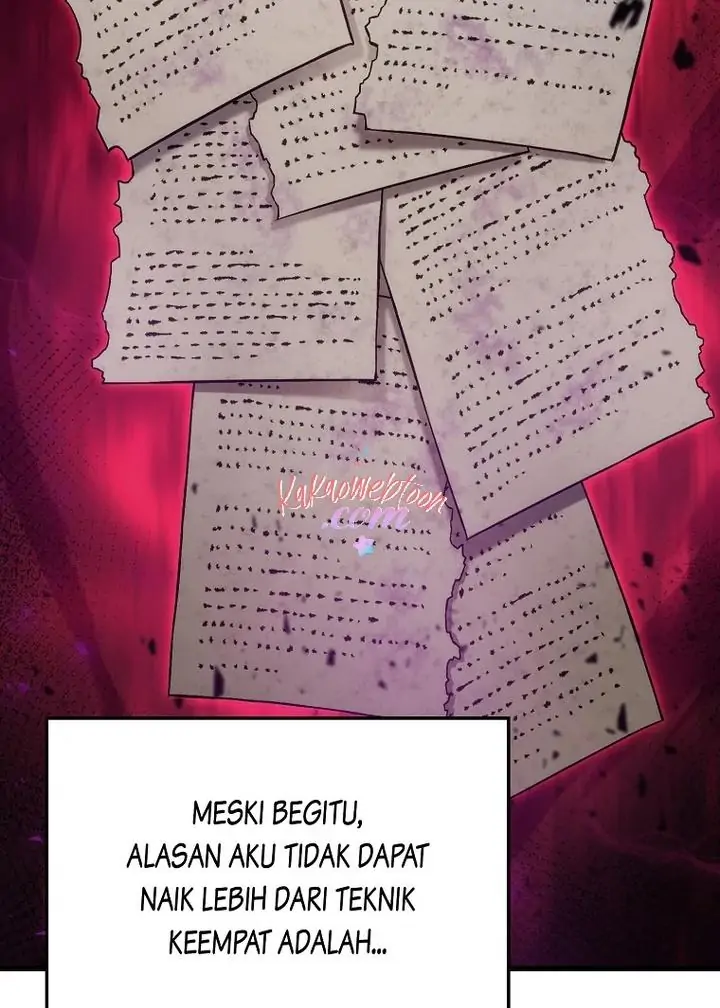 Kakaowebtoon
.com
MESKI BEGITU,
ALASAN AKU TIDAK DAPAT
NAIK LEBIH DARI TEKNIK
KEEMPAT ADALAH...